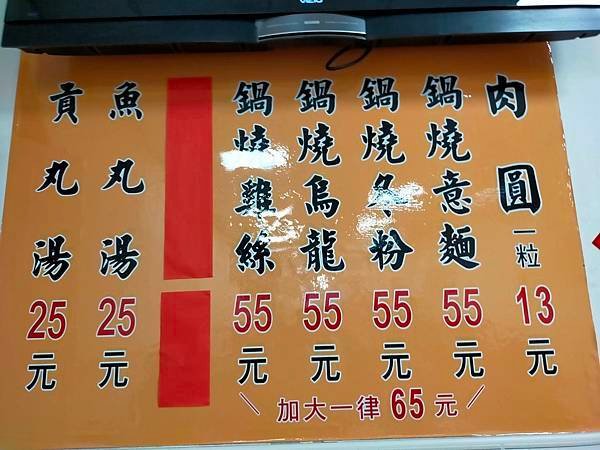 VIZIO
肉圓一粒13元
鍋燒意麵55元
鍋燒冬粉55元
鍋燒烏龍55元
鍋燒雞絲55元
加大一律65元
魚丸湯25元
貢丸湯25元